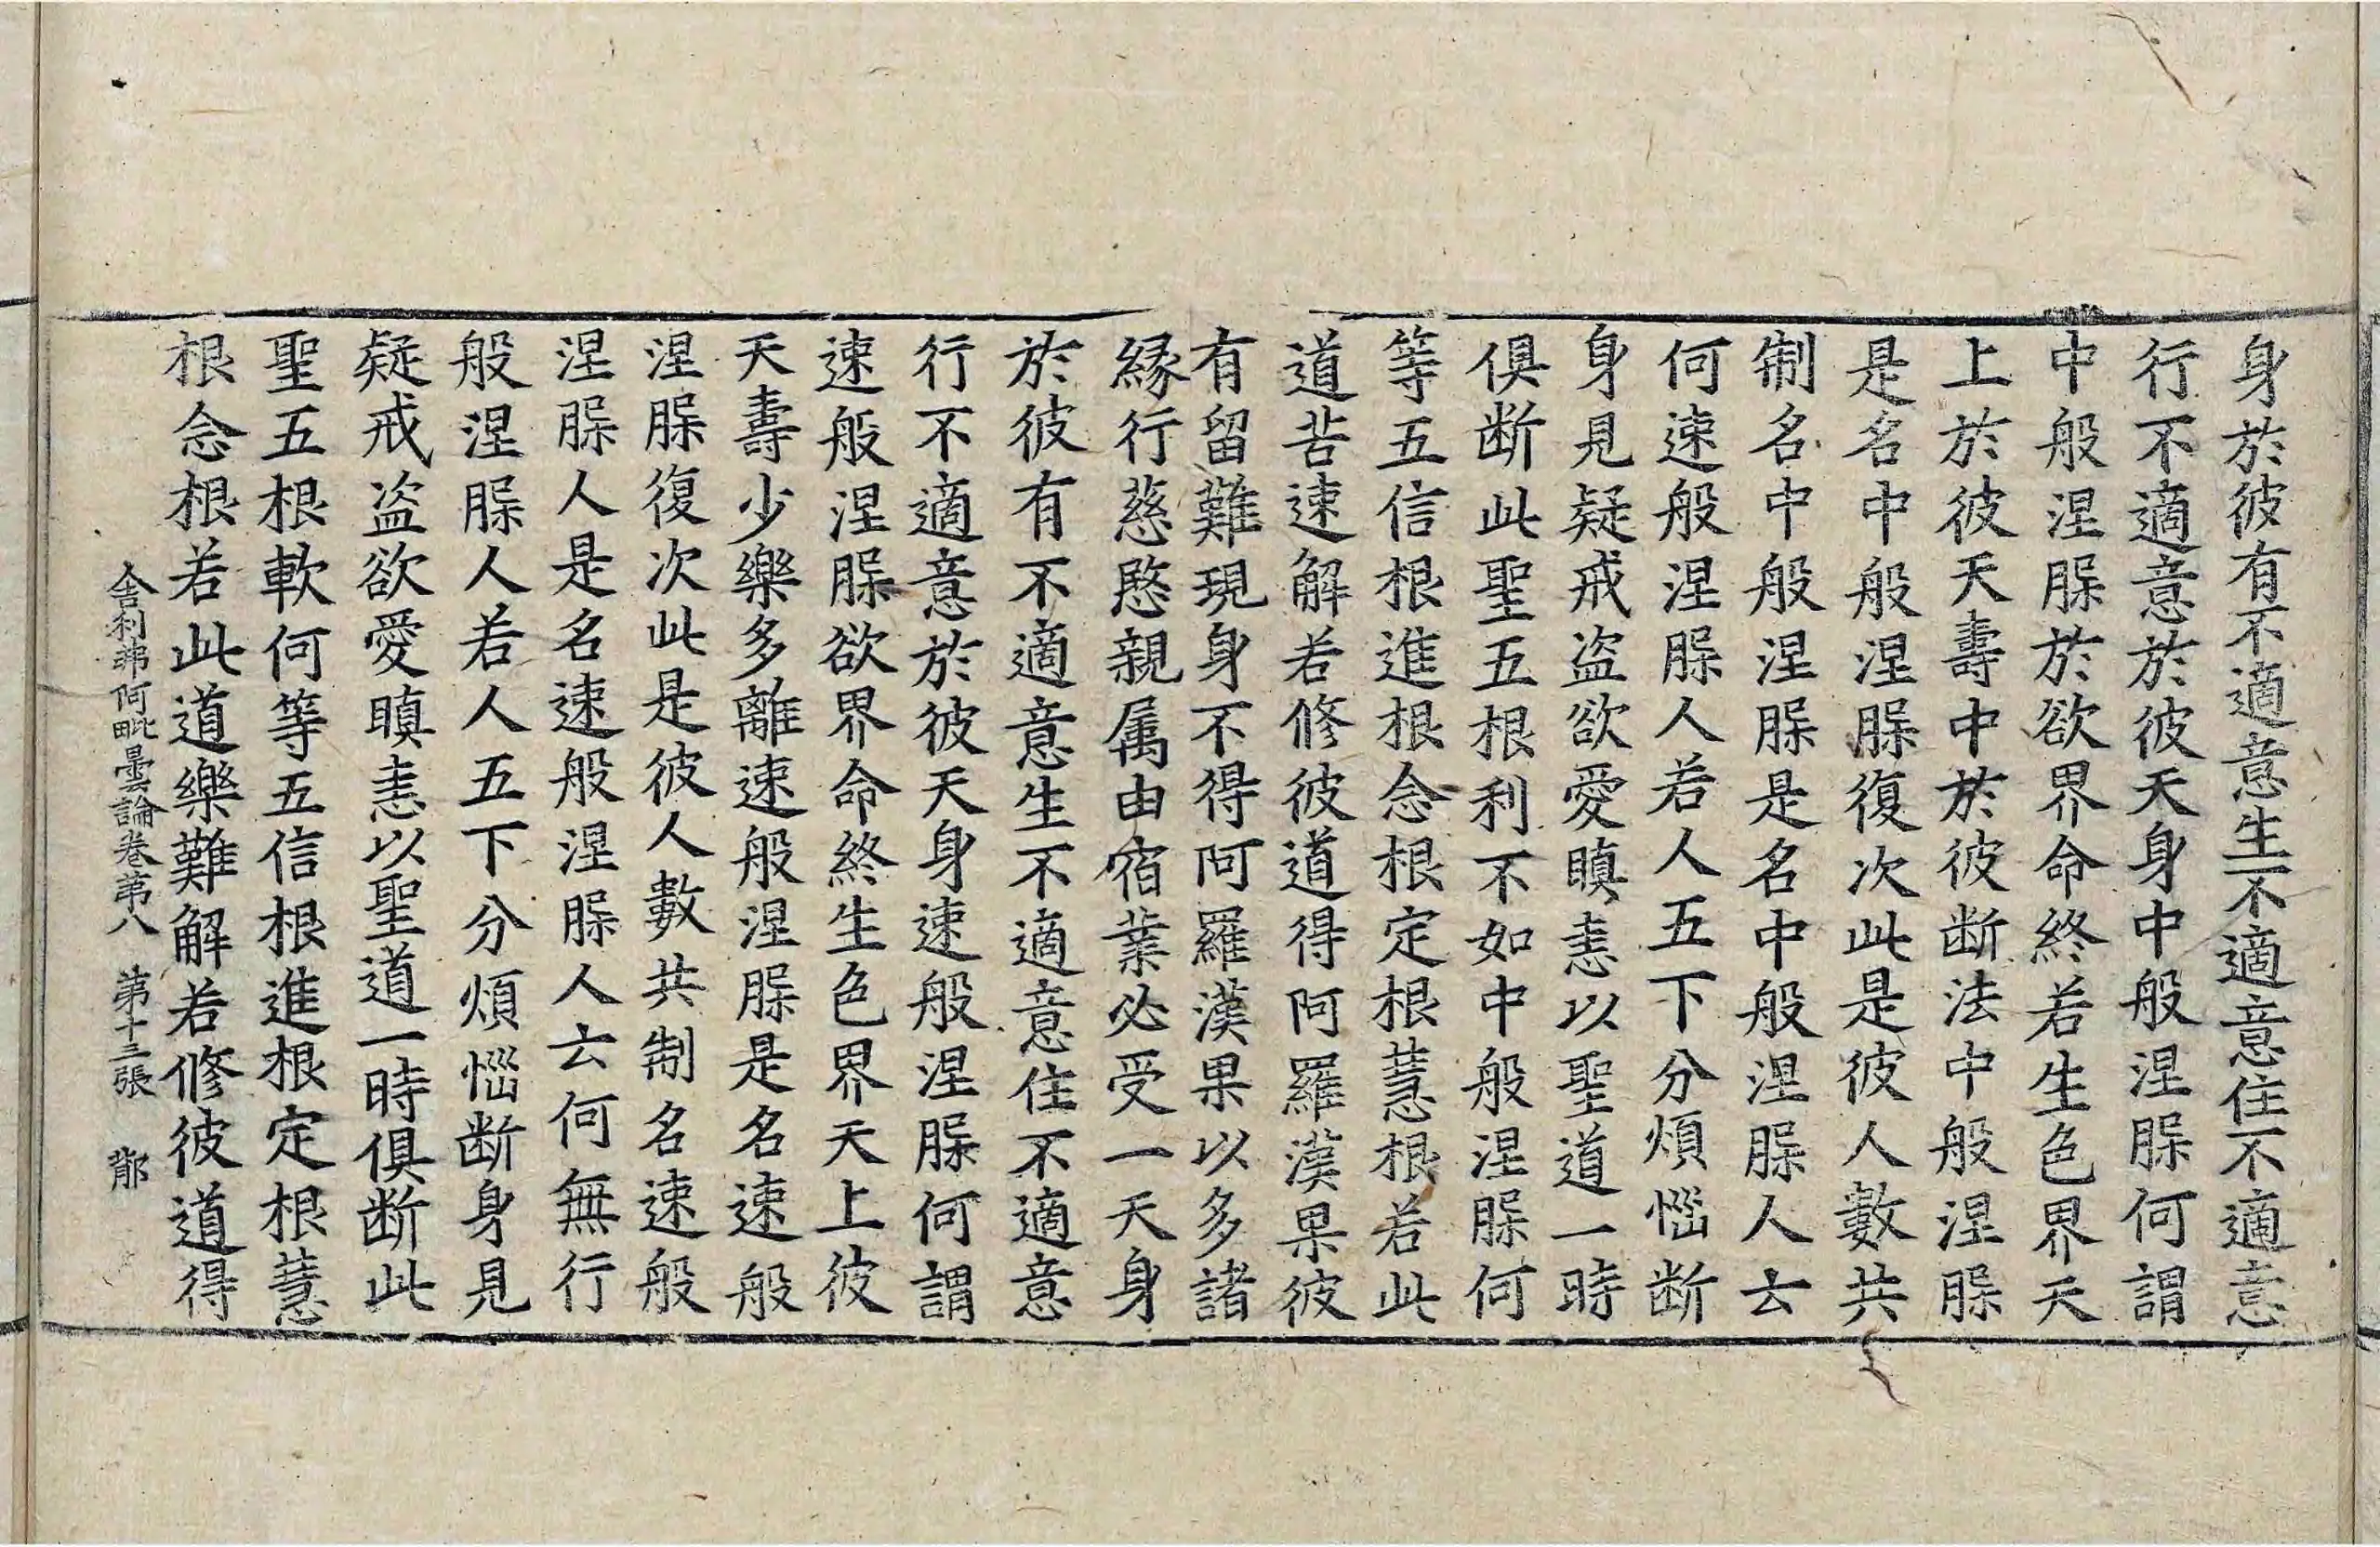 身於彼有不適意生不適意住不適意
行不適意於彼天身中般涅槃何謂
中般涅槃於欲界命終若生色界天
上於彼天壽中於彼断法中般涅槃
是名中般涅槃復次此是彼人數共
制名中般涅槃是名中般涅槃人云
何速般涅槃人若人五下分煩惱断
身見疑戒盗欲愛瞋恚以聖道一時
俱断此聖五根利不如中般涅槃何
等五信根進根念根定根慧根若此
道苦速解若修彼道得阿羅漢果彼
有留難現身不得阿羅漢果以多諸
縁行慈愍親属由宿業必受一天身
於彼有不適意生不適意住不適意
行不適意於彼天身速般涅槃何謂
速般涅槃欲界命終生色界天上彼
天壽少樂多離速般涅槃是名速般
涅槃復次此是彼人數共制名速般
涅槃人是名速般涅槃人云何無行
般涅槃人若人五下分煩惱断身見
疑戒盗欲愛瞋恚以聖道一時俱断此
聖五根軟何等五信根進根定根慧
根念根若此道樂難解若修彼道得
舎利弗阿毗曇論卷第八 第十三張 鄁